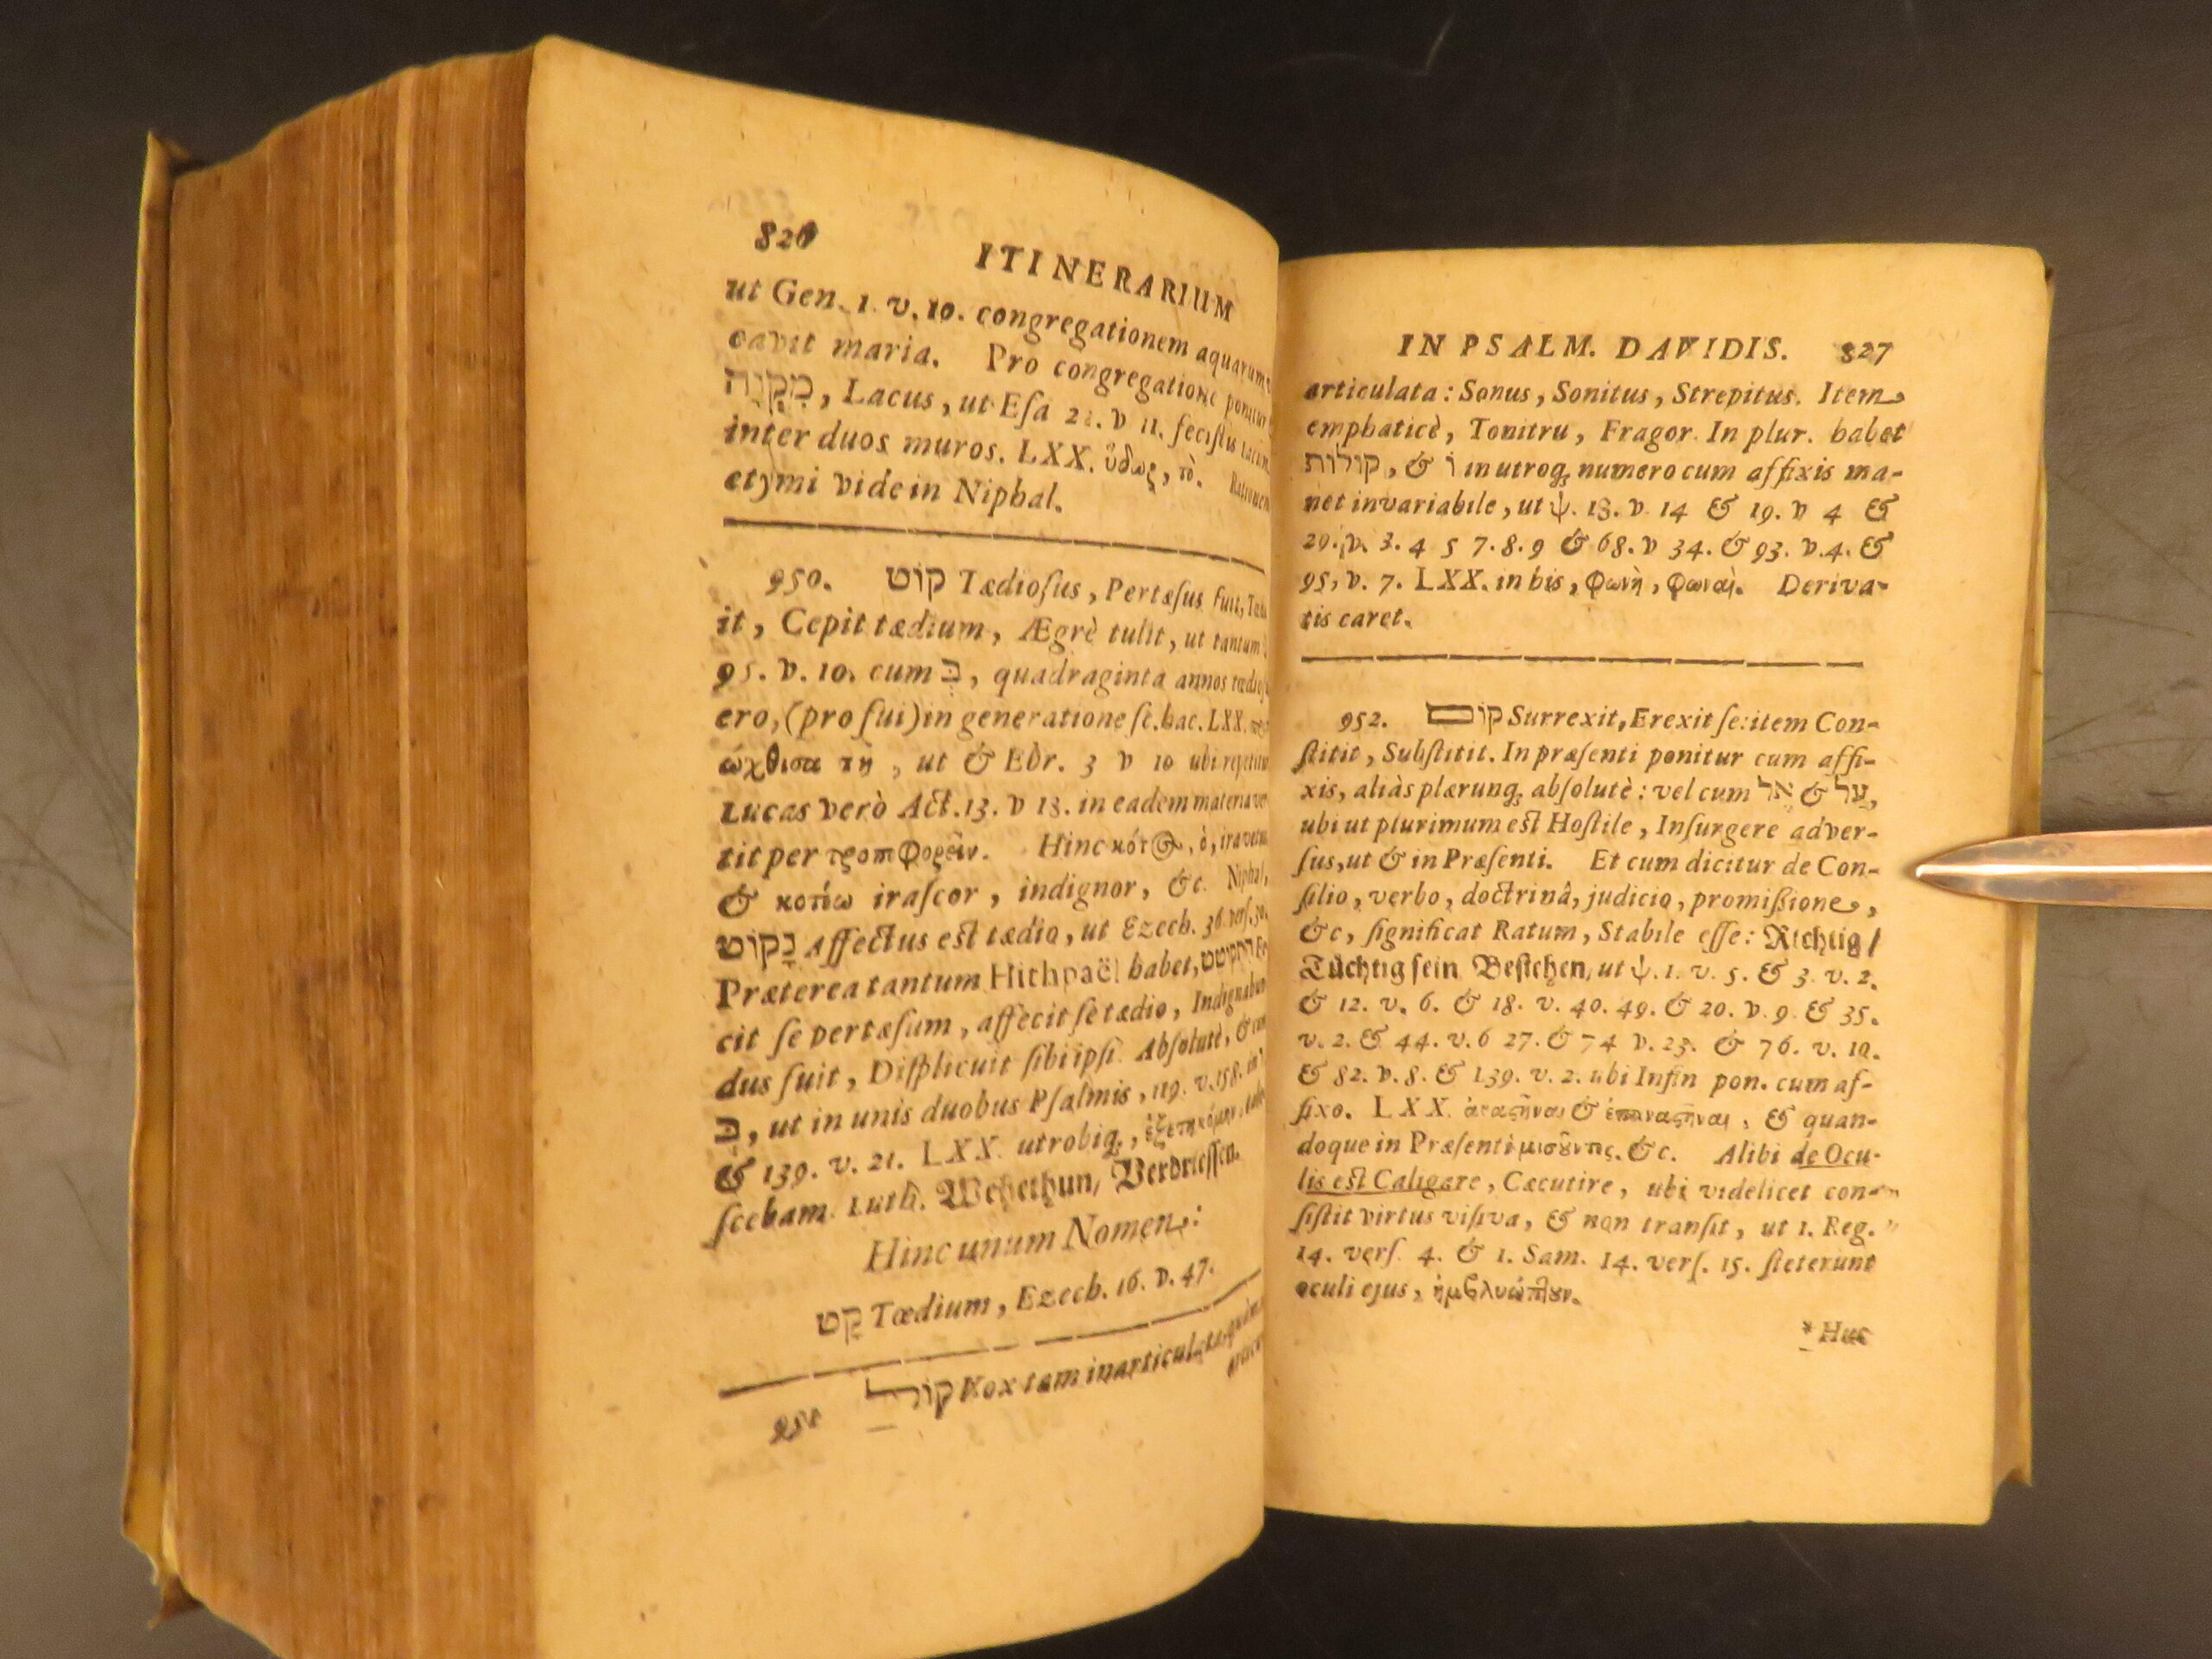 826 ITINERARIUM
ut Gen. 1. v. 10. congregationem aquarum
vavit maria. Pro congregatione ponitur
מִקְוָה, Lacus, ut Eſa 22. v 11. feciſtis lacum
inter duos muros. LXX. ὕδωρ, τὸ. Rationem
etymi vide in Niphal.
950. קוֹט Tædioſus, Pertæſus fuit,
it, Cepit tædium, Ægrè tulit, ut tantum
95. v. 10. cum בְּ, quadraginta annos
ero, (pro fui) in generatione ſc. hac. LXX.
ώχθισα τῇ, ut & Ebr. 3 v 10 ubi
Lucas verò Act. 13. v 18. in eadem materia
tit per τροπφορεῖν. Hinc κότ, ὁ, ira
& κοτέω iraſcor, indignor, &c. Niphal,
נָקוֹט Affectus eſt tædio, ut Ezech. 36. verſ.
Præterea tantum Hithpaël habet,
cit ſe pertæſum, affecit ſe tædio,
dus fuit, Diſplicuit ſibi ipſi. Abſolutè, &
בְּ, ut in unis duobus Pſalmis, 119. v. 158.
& 139. v. 21. LXX. utrobiq.,
ſcebam. Luth. Wehethun, Verdrieſſen.
Hinc unum Nomen:
קָט Tædium, Ezech. 16. v. 47.
951 קוֹל Vox tam inarticulata,
IN PSALM. DAVIDIS. 827
articulata: Sonus, Sonitus, Strepitus. Item
emphaticè, Tonitru, Fragor. In plur. habet
קולות, & וֹ in utroq; numero cum affixis ma-
net invariabile, ut ψ. 18. v. 14 & 19. v 4 &
29. v. 3. 4 5 7. 8. 9 & 68. v 34. & 93. v. 4. &
95, v. 7. LXX. in his, φωνὴ, φωναὶ. Deriva-
tis caret.
952. קוּם Surrexit, Erexit ſe: item Con-
ſtitit, Subſtitit. In præſenti ponitur cum affi-
xis, aliàs plærunq; abſolutè: vel cum אֶל & עַל,
ubi ut plurimum eſt Hoſtile, Inſurgere adver-
ſus, ut & in Præſenti. Et cum dicitur de Con-
ſilio, verbo, doctrinâ, judicio, promiſſione,
&c, ſignificat Ratum, Stabile eſſe: Richtig/
Tüchtig ſein Beſtehen, ut ψ. 1. v. 5. & 3. v. 2.
& 12. v. 6. & 18. v. 40. 49. & 20. v. 9. & 35.
v. 2. & 44. v. 6 27. & 74 v. 23. & 76. v. 10.
& 82. v. 8. & 139. v. 2. ubi Infin pon. cum af-
fixo. LXX. ἀναςῆναι & ἐπαναςῆναι, & quan-
doque in Præſenti μισοῦντες. &c. Alibi de Ocu-
lis eſt Caligare, Cæcutire, ubi videlicet con-
ſiſtit virtus viſiva, & non tranſit, ut 1. Reg.
14. verſ. 4. & 1. Sam. 14. verſ. 15. ſteterunt
oculi ejus, ἠμβλυώπουν.
* Huc